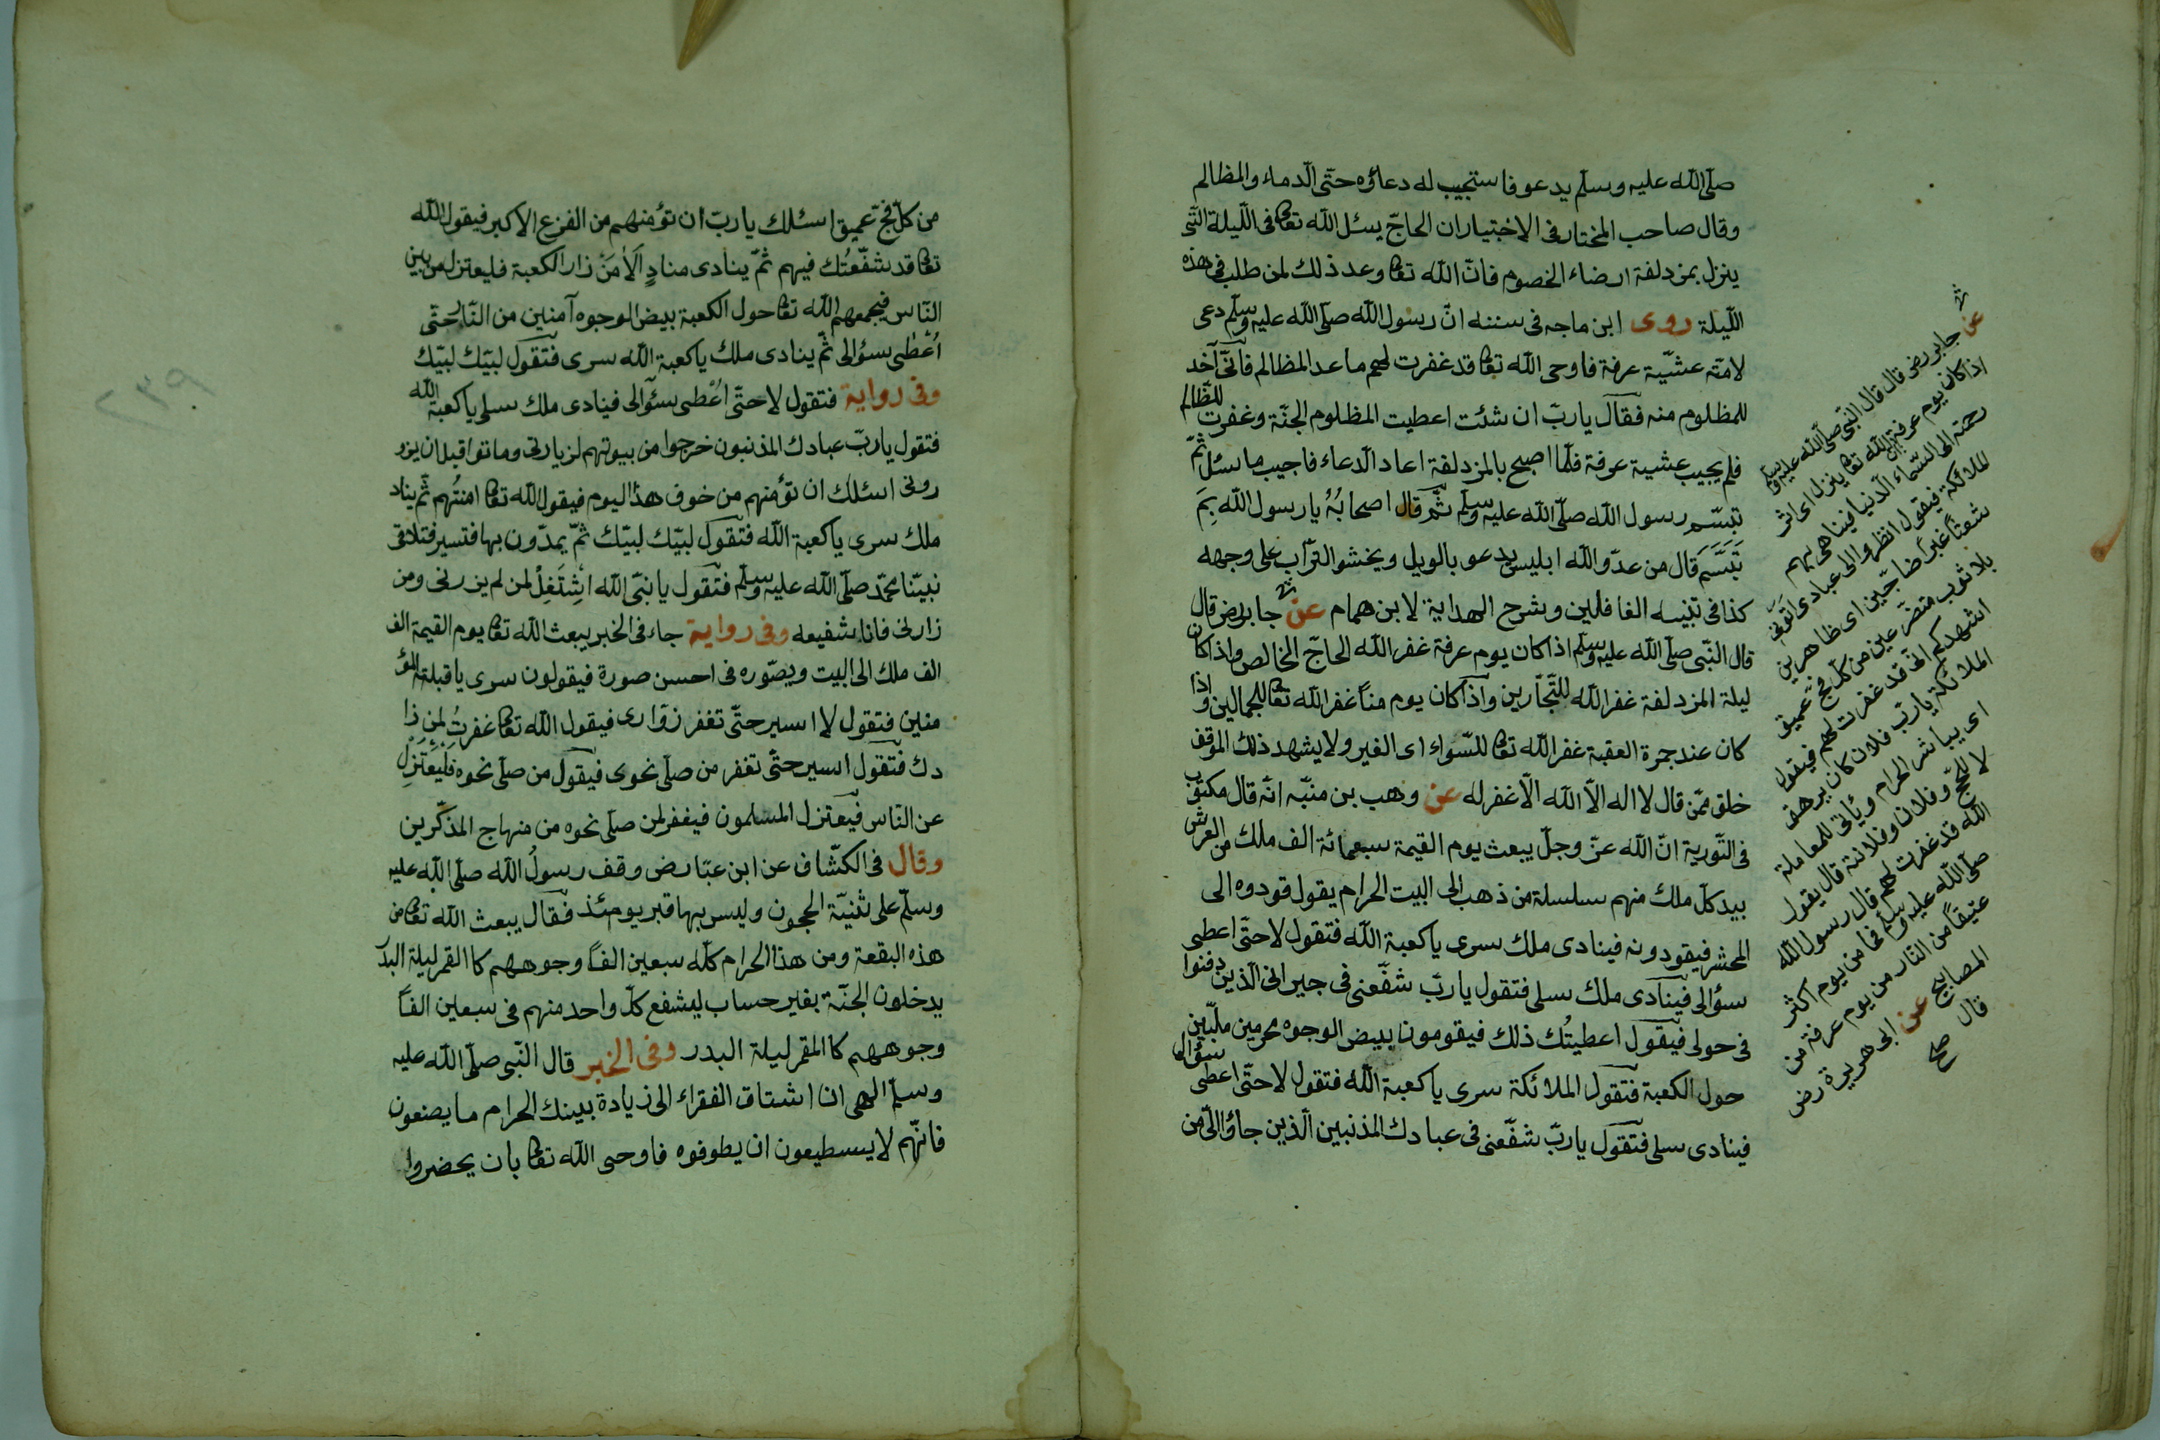 صلّى الله عليه وسلّم يدعو فاستجيب له دعاؤه حتّى الدماء والمظالم
وقال صاحب المختار فى الاختيار ان الحاجّ يسئل الله تعا فى اللّيلة الّتى
ينزل بمزدلفة ارضاء الخصوم فانّ الله تعا وعد ذلك لمن طلب فى هذه
اللّيلة روى ابن ماجه فى سننه انّ رسول الله صلّى الله عليه وسلّم دعى
لامّته عشيّة عرفة فاوحى الله تعا قد غفرت لهم ما عدا المظالم فانّى آخذ
للمظلوم منه فقال ياربّ ان شئت اعطيت المظلوم الجنّة وغفرت للظّالم
فلم يجيب عشية عرفة فلمّا اصبح بالمزدلفة اعاد الدّعاء فاجيب ما سئل ثمّ
تبسّم رسول الله صلّى الله عليه وسلّم ثمّ قال اصحابُهُ يارسول الله بِمَ
تَبَسَّمَ قال من عدوّ الله ابليس يدعو بالويل ويحشو التّراب على وجهه
كذا فى تنبيه الغافلين وشرح الهداية لابن همام عن جابر رض قال
قال النّبى صلّى الله عليه وسلّم اذا كان يوم عرفة غفر الله الحاجّ الخالص واذا كان
ليلة المزدلفة غفر الله للتّجّارين واذا كان يوم مناً غفر الله تعا للجمالين واذا
كان عند جمرة العقبة غفر الله تعا للسّواء اى الغير ولا يشهد ذلك الموقف
خلق ممّن قال لا اله الاّ الله الاّ غفر له عن وهب بن منبّه انّه قال مكتوب
فى التّورية انّ الله عزّ وجلّ يبعث يوم القيمة سبعمائة الف ملك من العرش
بيد كلّ ملك منهم سلسلة من ذهب الى البيت الحرام يقول قودوه الى
المحشر فيقودونه فينادى ملك سرى ياكعبة الله فتقول لا حتّى اعطى
سؤالى فينادى ملك سلى فتقول ياربّ شفّعنى فى جيرانى الّذين دفنوا
فى حولى فيقول اعطيتُك ذلك فيقومون بيض الوجوه محرمين ملبّين
حول الكعبة فتقول الملائكة سرى ياكعبة الله فتقول لا حتّى اعطى سؤالى
فينادى سلى فتقول ياربّ شفّعنى فى عبادك المذنبين الّذين جاؤا الىّ من
عن جابر رض قال قال النّبى صلّى الله عليه وسلّم
اذا كان يوم عرفة انّ الله تعا ينزل اى اثر
رحمته الى السّماء الدّنيا فيباهى بهم
الملائكة فيقول انظروا الى عبادى اتونى
شعثاً غبراً ضاجّين اى ظاهرين
بلا ثوب متضرّعين من كلّ فجّ عميق
اشهدكم انّى قد غفرت لهم فيقول
الملائكة ياربّ فلان كان يرهق
اى يباشر الحرام ويأتى للمعاملة
لا للحجّ وفلان وفلانة قال يقول
الله قد غفرت لهم قال رسول الله
صلّى الله عليه وسلّم فما من يوم اكثر
عتيقاً من النّار من يوم عرفة من
المصابيح عن ابى هريرة رض
قال صح
من كلّ فجّ عميق اسئلك ياربّ ان تؤمنهم من الفزع الاكبر فيقول الله
تعا قد شفّعتُك فيهم ثمّ ينادى منادٍ اَلاَ مَنْ زار الكعبة فليعتزل من بين
النّاس فيجمعهم الله تعا حول الكعبة بيض الوجوه آمنين من النّار حتّى
اُعْطٰى سؤالى ثمّ ينادى ملك ياكعبة الله سرى فتقول لبيّك لبيّك
وفى رواية فتقول لا حتّى اُعْطى سؤالى فينادى ملك سلى ياكعبة الله
فتقول ياربّ عبادك المذنبون خرجوا من بيوتهم لزيارتى وماتوا قبل ان يزو
رونى اسئلك ان تؤمنهم من خوف هذا اليوم فيقول الله تعا امنتُهم ثمّ يناد
ملك سرى ياكعبة الله فتقول لبيّك لبيّك ثمّ يمدّون بها فتسير فتلاقى
نبيّنا محمّد صلّى الله عليه وسلّم فتقول يانبّى الله اِشْتَغِلْ لمن لم يزرنى ومن
زارنى فانا شفيعه وفى رواية جاء فى الخبر يبعث الله تعا يوم القيمة الف
الف ملك الى البيت ويصّوره فى احسن صورة فيقولون سرى ياقبلة المؤ
منين فتقول لا اسير حتّى تغفر زوّارى فيقول الله تعا غفرتُ لِمن زا
دك فتقول اسير حتّى تغفر من صلّى نحوى فيقول من صلّى نحوه فَلْيَعْتَزِلْ
عن النّاس فيعتزل المسلمون فيغفر لمن صلّى نحوه من منهاج المذكّرين
وقال فى الكشّاف عن ابن عبّا رض وقف رسولُ الله صلّى الله عليه
وسلّم على ثنيّة الحجون وليس بها قبر يومئذ فقال يبعث الله تعا من
هذه البقعة ومن هذا الحرام كلّه سبعين الفاً وجوههم كا القمر ليلة البدر
يدخلون الجنّة بغير حساب ليشفع كلّ واحد منهم فى سبعين الفاً
وجوههم كا المقر ليلة البدر وفى الخبر قال النّبى صلّى الله عليه
وسلم الهى ان اشتاق الفقراء الى زيادة ببيتك الحرام ما يصنعون
فانّهم لا يسطيعون ان يطوفوه فاوحى الله تعا بان يحضروا